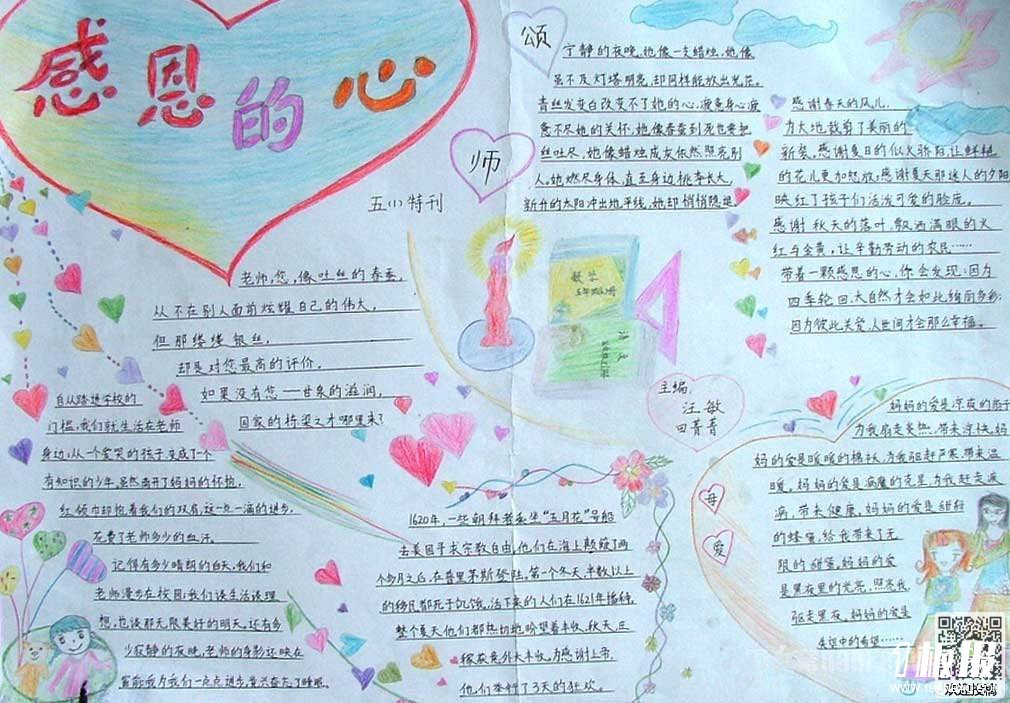 感恩的心
五(1)特刊
颂
师
宁静的夜晚,她像一支蜡烛,她像
虽不及灯塔明亮,却同样能放出光芒。
青丝发变白改变不了她的心,疲惫身心疲
惫不尽她的关怀,她像春蚕到死也要把
丝吐尽,她像蜡烛成灰依然照亮别
人。她燃尽身体,直至身边桃李长大,
新升的太阳冲出地平线,她却悄悄隐退
感谢春天的风儿,
为大地裁剪了美丽的
新装,感谢夏日的似火骄阳,让鲜艳
的花儿更加怒放,感谢夏天那迷人的夕阳
映红了孩子们活泼可爱的脸庞。
感谢秋天的落叶,飘洒满眼的火
红与金黄,让辛勤劳动的农民……
带着一颗感恩的心,你会发现:因为
四季轮回,大自然才会如此绚丽多彩;
因为彼此关爱,人世间才会那么幸福。
老师,您,像吐丝的春蚕,
从不在别人面前炫耀自己的伟大,
但那缕缕银丝,
却是对您最高的评价,
如果没有您——甘泉的滋润,
国家的栋梁之才哪里来?
数学
语文
主编:
汪敏
田菁菁
自从踏进学校的
门槛,我们就生活在老师
身边,从一个爱哭的孩子,变成了一个
有知识的少年,虽然离开了妈妈的怀抱,
红领巾却抱着我们的双肩,这一点一滴的进步,
花费了老师多少的血汗。
记得有多少晴朗的白天,我们和
老师漫步在校园;我们谈生活谈理
想,也谈那无限美好的明天,还有多
少寂静的夜晚,老师的身影还映在
窗前,
1620年,一些朝拜者乘坐“五月花”号船
去美国寻求宗教自由,他们在海上颠簸了两
个多月之后,在普里茅斯登陆。第一个冬天,半数以上
的移民都死于饥饿,活下来的人们在1621年播种,
整个夏天他们都热切地盼望着丰收,秋天,庄
稼获意外大丰收,为感谢上帝,
他们举行了3天的狂欢。
母
爱
妈妈的爱是凉夜的扇子
为我扇走炎热,带来凉快,妈
妈的爱是暖暖的棉袄,为我驱赶严寒,带来温
暖。妈妈的爱是病魔的克星,为我赶走疾
病,带来健康,妈妈的爱是甜甜
的蜂蜜,给我带来了无
限的甜蜜,妈妈的爱
是黑夜里的光亮,照亮我
驱走黑夜,妈妈的爱是
失望中的希望……
欢迎投稿